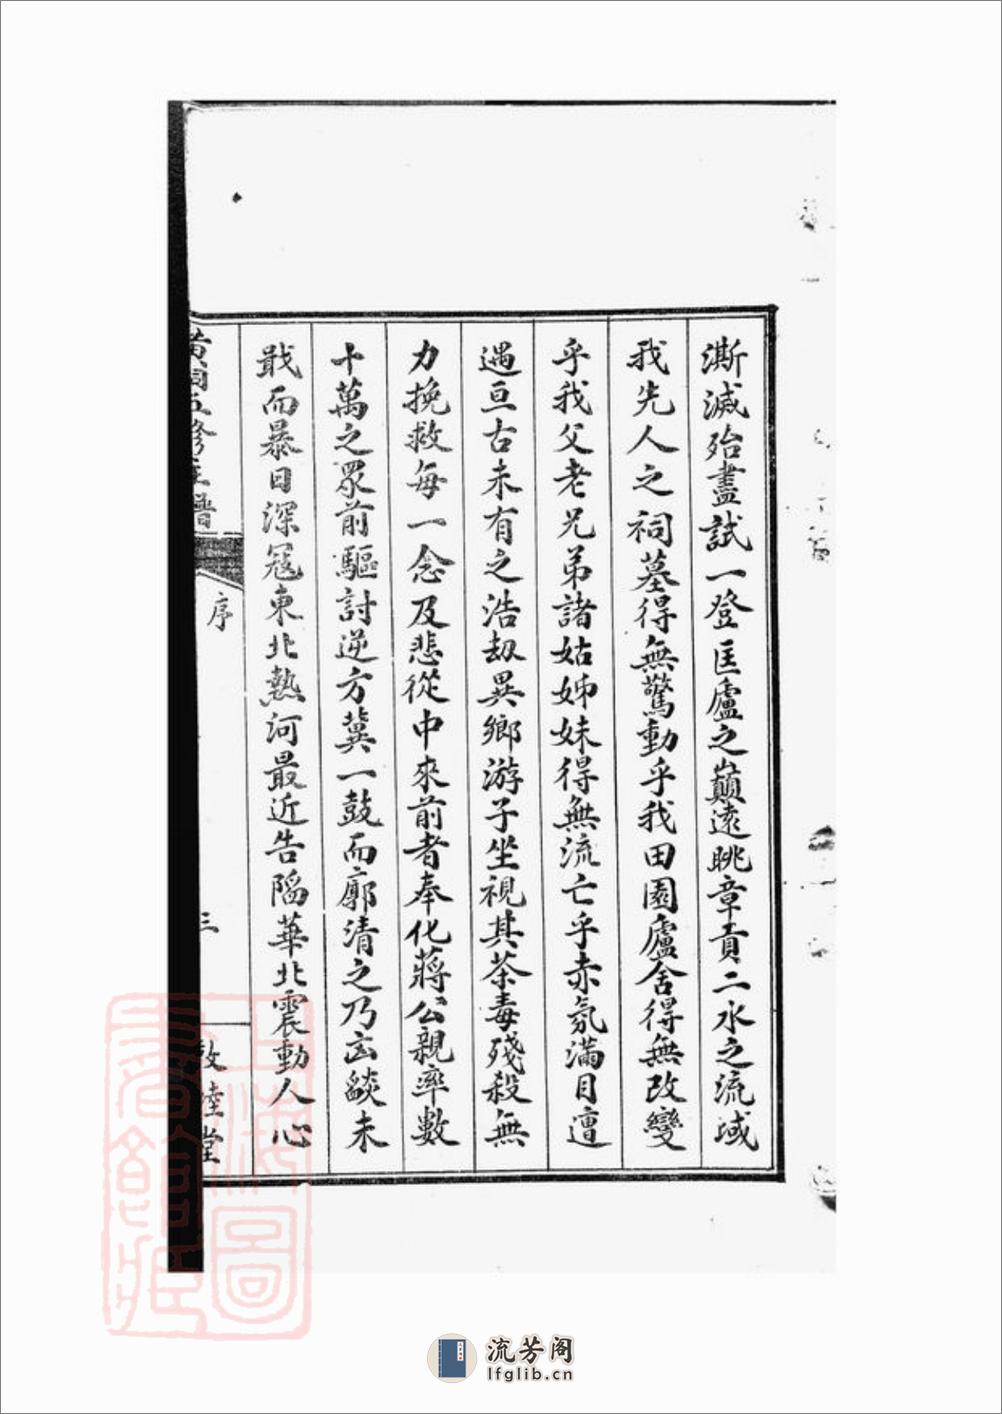 澌滅殆盡試一登匡廬之巔遠眺章貢二水之流域
我先人之祠墓得無驚動乎我田園廬舍得無改變
乎我父老兄弟諸姑姊妹得無流亡乎赤氛滿目遭
遇亘古未有之浩劫異鄉游子坐視其荼毒殘殺無
力挽救每一念及悲從中來前者奉化蔣公親率數
十萬之眾前驅討逆方冀一鼓而廓清之乃玄燄未
戢而暴日深寇東北熱河最近告陷華北震動人心
黃
五修
譜
序
三
敦睦堂
上海圖
書館藏
流芳阁
lfglib.cn